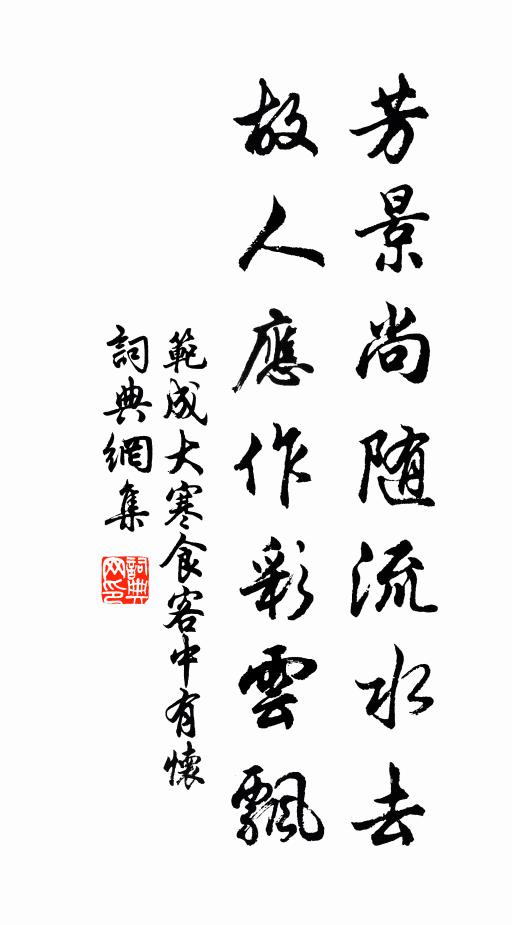 芳景尚随流水去
故人應作彩雲飄
範成大寒食客中有懷
詞典網集
詞典網印